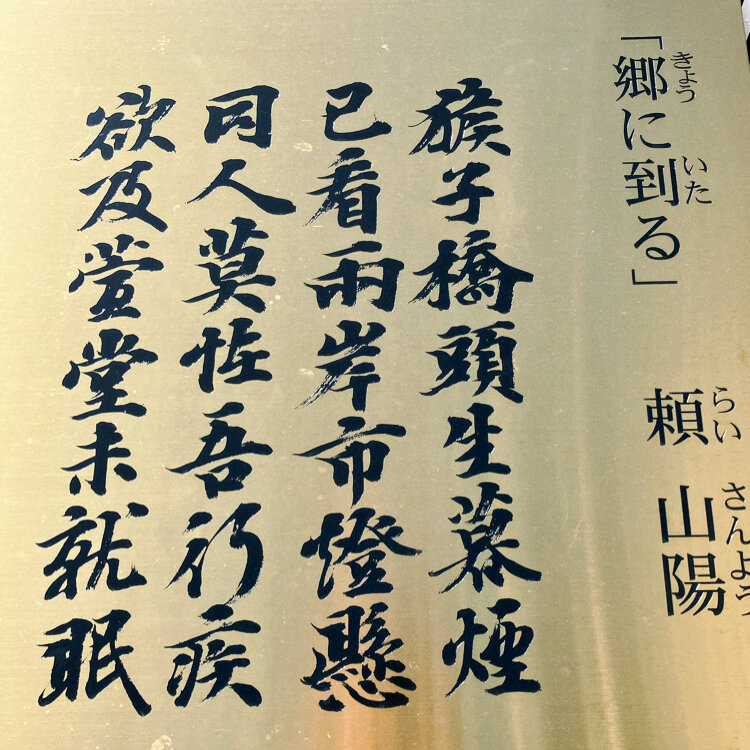 「郷に到る」
きょう
いた
頼 山陽
らい
さんよう
猴子橋頭生暮煙
已看兩岸市燈懸
同人莫恠吾行疾
欲及萱堂未就眠